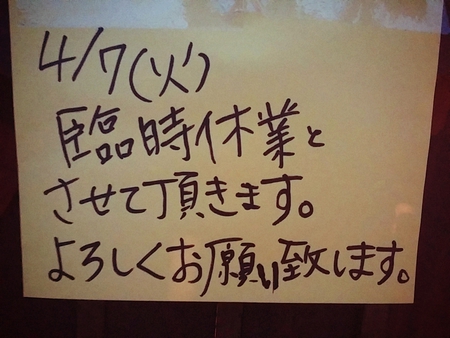 4/7(火)
臨時休業と
させて頂きます。
よろしくお願い致します。